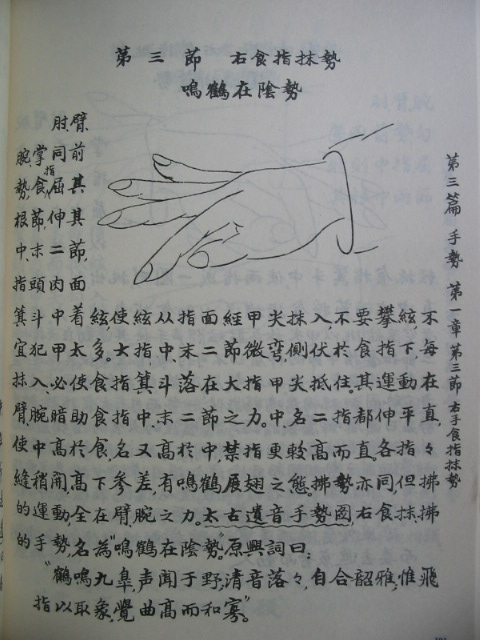 第三節 右食指抹勢
鳴鶴在陰勢
肘、臂、
腕、掌同前
勢,食指屈其
根節,伸其
中、末二節,
指頭肉面
箕斗中着絃,使絃从指面經甲尖抹入,不要攀絃,不
宜犯甲太多。大指中、末二節微彎,側伏於食指下,每
抹入,必使食指箕斗落在大指甲尖抵住。其運動在
臂腕,暗助食指中、末二節之力。中名二指都伸平直,
使中高於食,名又高於中,禁指更較高而直。各指々
縫稍開,高下參差,有鳴鶴展翅之態。拂勢亦同,但拂
的運動全在臂腕之力。太古遺音手勢圖,右食抹、拂
的手勢,名為“鳴鶴在陰勢”。原興詞曰:
“鶴鳴九皋,声聞于野;清音落々,自合韶雅,惟飛
指以取象,覺曲高而和寡”。
第三篇 手勢 第一章 第三節右手食指抹勢